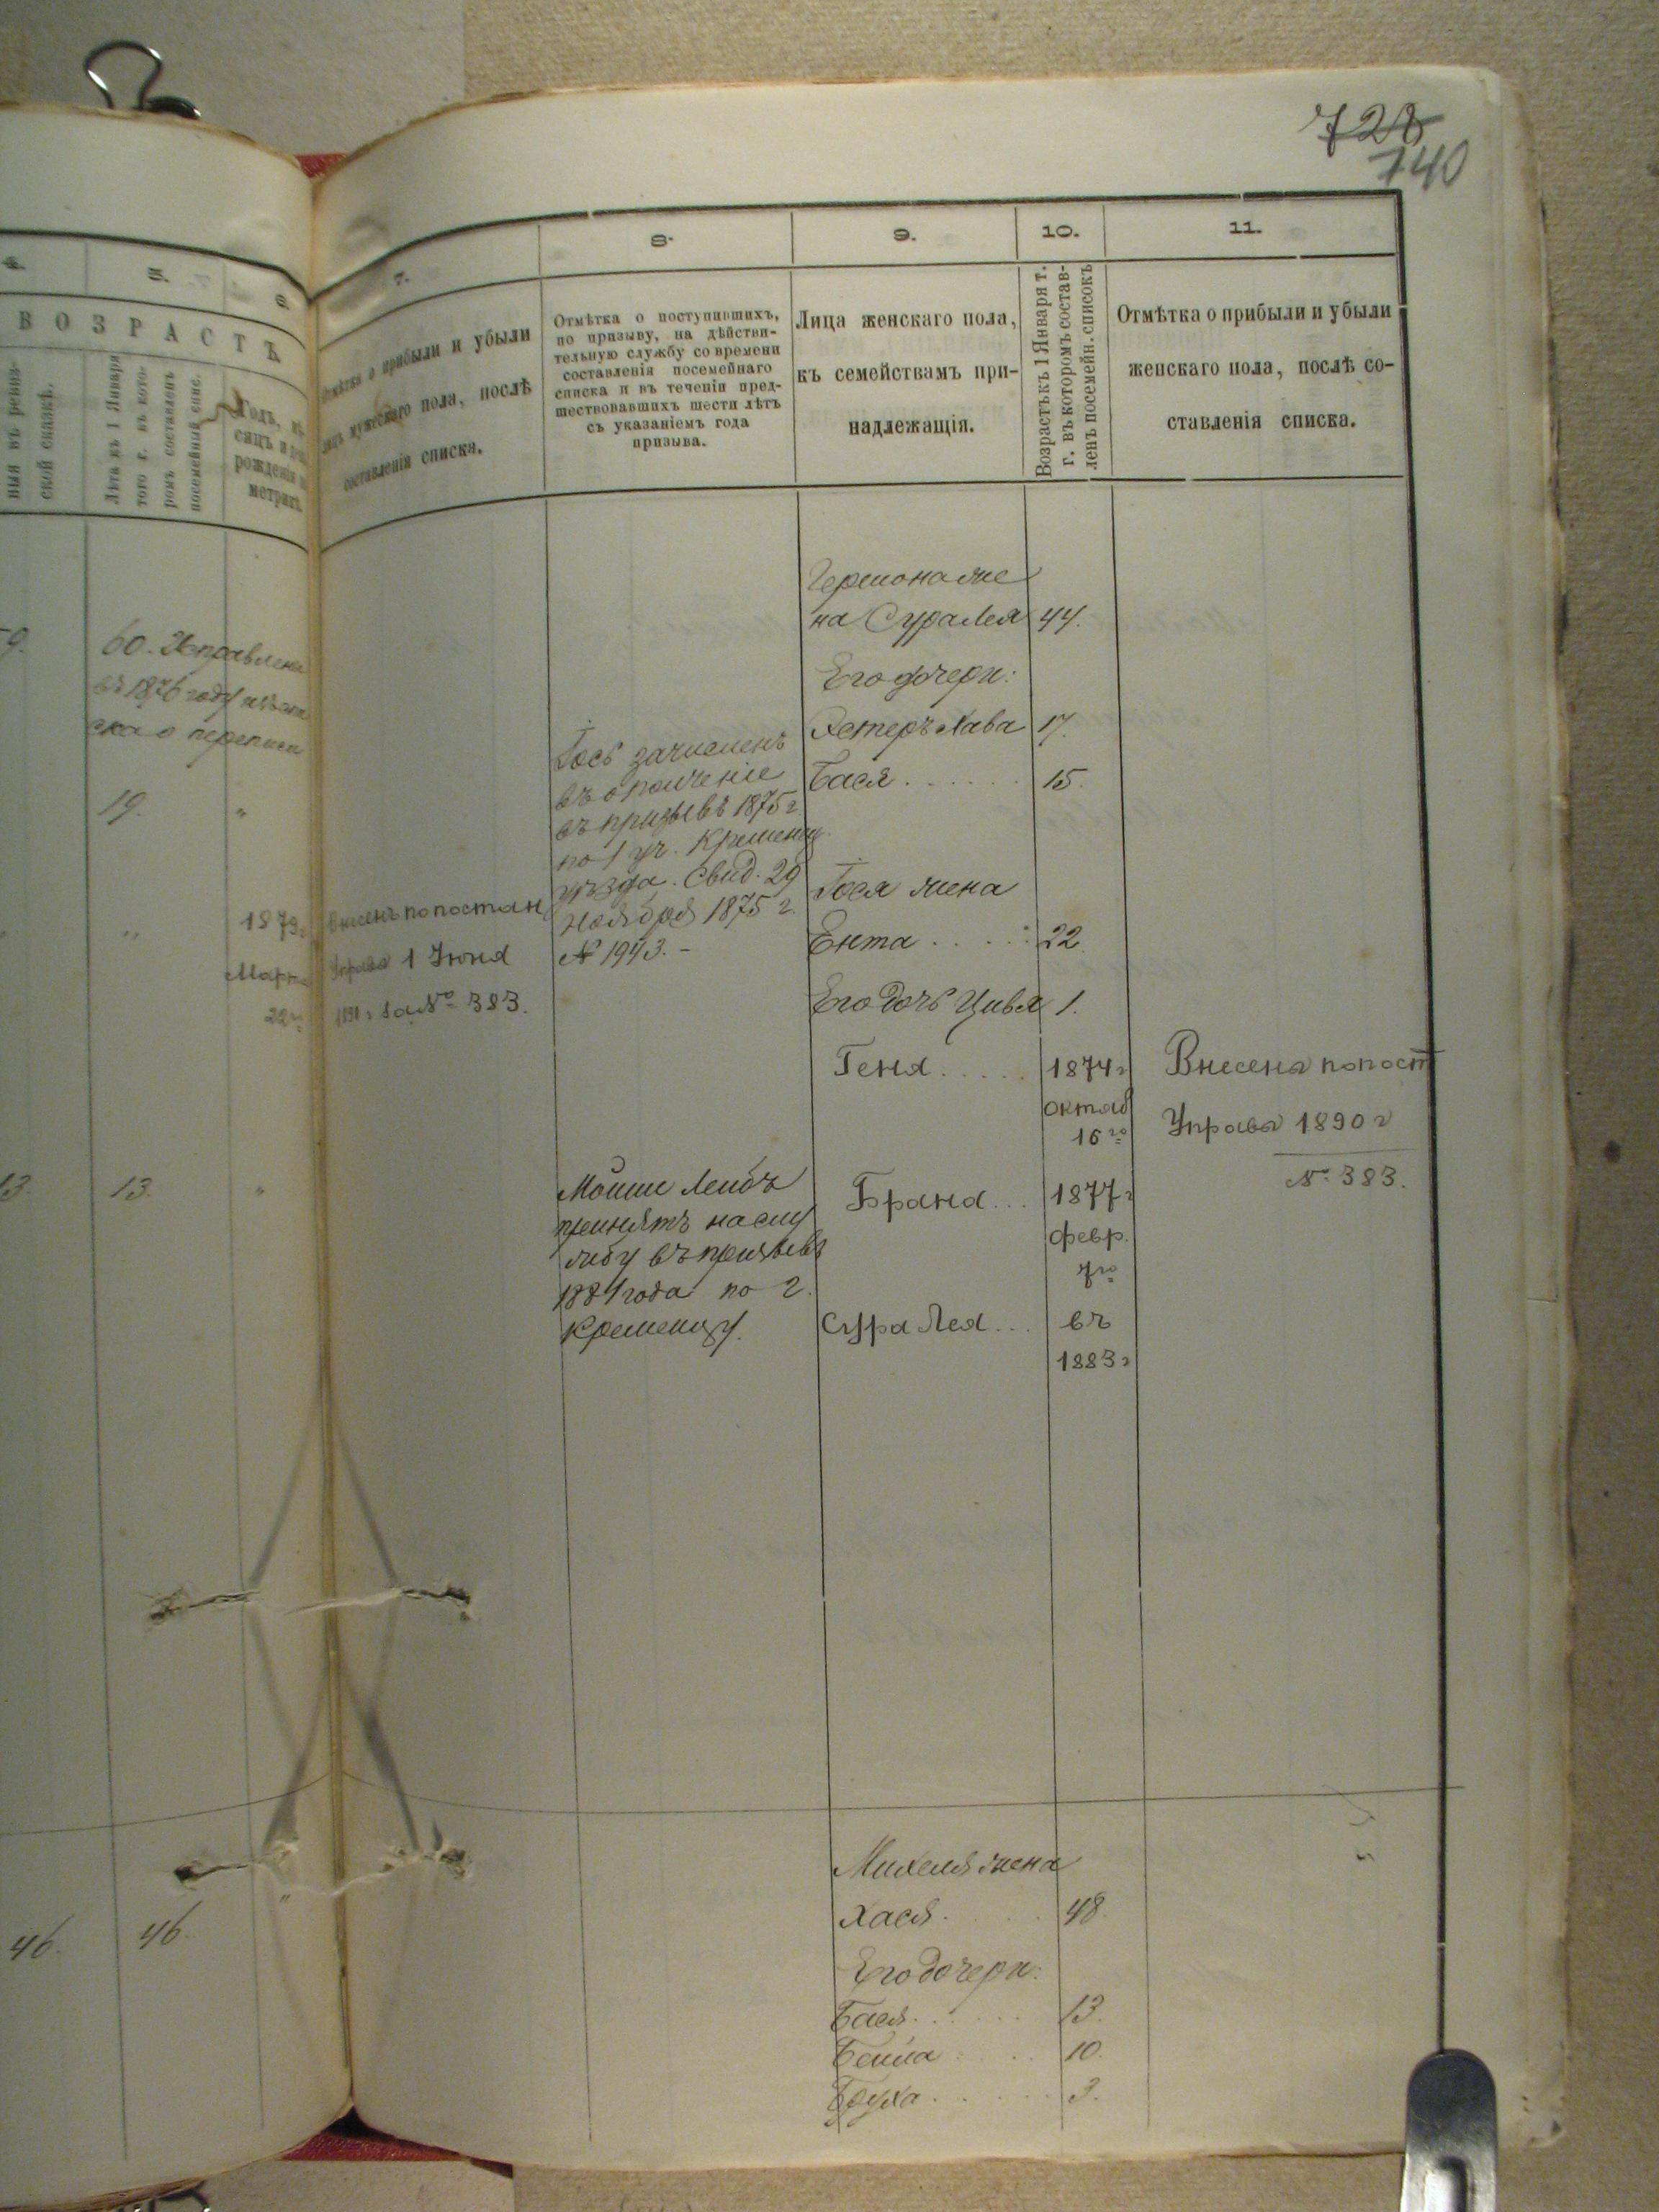 728
740
4.
5.
6.
ВОЗРАСТЪ
ныя въ ревиз-
ской сказкѣ.
Лѣта къ 1 Января
того г. въ кото-
ромъ составленъ
посемейный спис.
Годъ, мѣ-
сяцъ и день
рожденія по
метрик.
59.
60. Исправлена
въ 1876 году
ска о переписи
19.
"
"
"
1879 г.
Марта
22го
13.
13.
"
46.
46.
"
7.
8.
9.
10.
11.
Отмѣтка о прибыли и убыли
лицъ мужескаго пола, послѣ
составленія списка.
Отмѣтка о поступившихъ,
по призыву, на дѣйстви-
тельную службу со времени
составленія посемейнаго
списка и въ теченіи пред-
шествовавшихъ шести лѣтъ
съ указаніемъ года
призыва.
Лица женскаго пола,
къ семействамъ при-
надлежащія.
Возрастъ къ 1 Января т.
г. въ которомъ состав-
ленъ посемейн. списокъ
Отмѣтка о прибыли и убыли
женскаго пола, послѣ со-
ставленія списка.
внесенъ по постан
Управы 1 Июня
за № 383.
Іось зачисленъ
въ ополченіе
въ призывъ 1875 г.
по 1 уч. Кременец.
уѣзда. Свид. 29
ноября 1875 г.
№ 1943.-
Мошии Лейбъ
принятъ на слу
жбу въ призывъ
1881 года по г.
Кременцу.
Гершона же
на Сура Лея 44.
Его дочери:
Эстеръ Хава 17.
Бася...... 15.
Іося жена
Ента..... 22
Его дочь Цивья 1.
Геня..... 1874 г
октяб
16го
Внесена по пост
Управы 1890 г
№ 383.
Брана... 1877 г
февр.
7го
Сура Лея... въ
1883 г
Михеля жена
Хася..... 48.
Его дочери:
Бася...... 13.
Бейла.... 10.
Бруха...... 3.